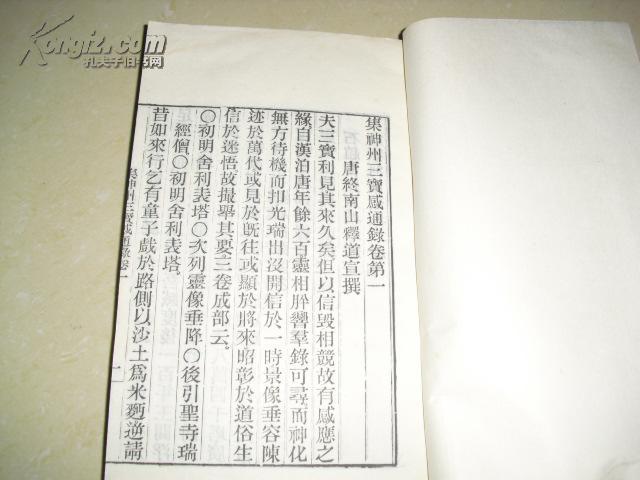 集神州三寶感通錄卷第一
唐終南山釋道宣撰
夫三寶利見其來久矣但以信毀相競故有感應之
緣自漢洎唐年餘六百靈相肸蠁羣錄可尋而神化
無方待機而扣光瑞出沒開信於一時景像垂容陳
迹於萬代或見於旣往或顯於將來昭彰於道俗生
信於迷悟故撮舉其要三卷成部云。
〇初明舍利表塔〇次列靈像垂降〇後引聖寺瑞
經僧〇初明舍利表塔
昔如來行乞有童子戲於路側以沙土爲米麪逆請
集神州三寶感通錄卷一
一
Kongfz.com
孔夫子旧书网